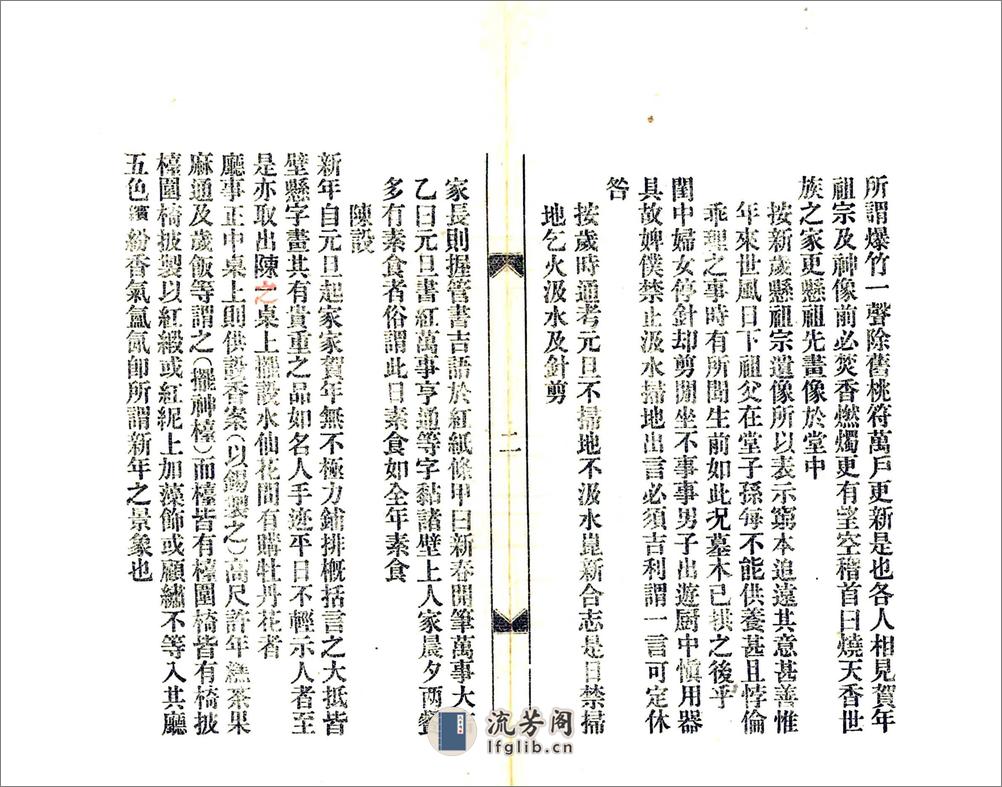 所謂爆竹一聲除舊桃符萬戶更新是也各人相見賀年
祖宗及神像前必焚香燃燭更有望空稽首曰燒天香世
族之家更懸祖先畫像於堂中
按新歲懸祖宗遺像所以表示窮本追遠其意甚善惟
年來世風日下祖父在堂子孫每不能供養甚且悖倫
乖理之事時有所聞生前如此况墓木已拱之後乎
閨中婦女停針却剪閒坐不事事男子出遊厨中愼用器
具故婢僕禁止汲水掃地出言必須吉利謂一言可定休
咎
按歲時通考元旦不掃地不汲水崑新合志是日禁掃
地乞火汲水及針剪
二
家長則握管書吉語於紅紙條甲曰新春開筆萬事大
乙曰元旦書紅萬事亨通等字黏諸壁上人家晨夕兩餐
多有素食者俗謂此日素食如全年素食
陳設
新年自元旦起家家賀年無不極力鋪排槪括言之大抵皆
壁懸字畫其有貴重之品如名人手迹平日不輕示人者至
是亦取出陳之桌上擺設水仙花間有購牡丹花者
廳事正中桌上則供設香案(以錫製之)高尺許年糕茶果
麻通及歲飯等謂之(擺神檯)而檯皆有檯圍椅皆有椅披
檯圍椅披製以紅緞或紅絨上加藻飾或顧繡不等入其廳
五色繽紛香氣氤氳卽所謂新年之景象也
流芳阁
lfglib.cn